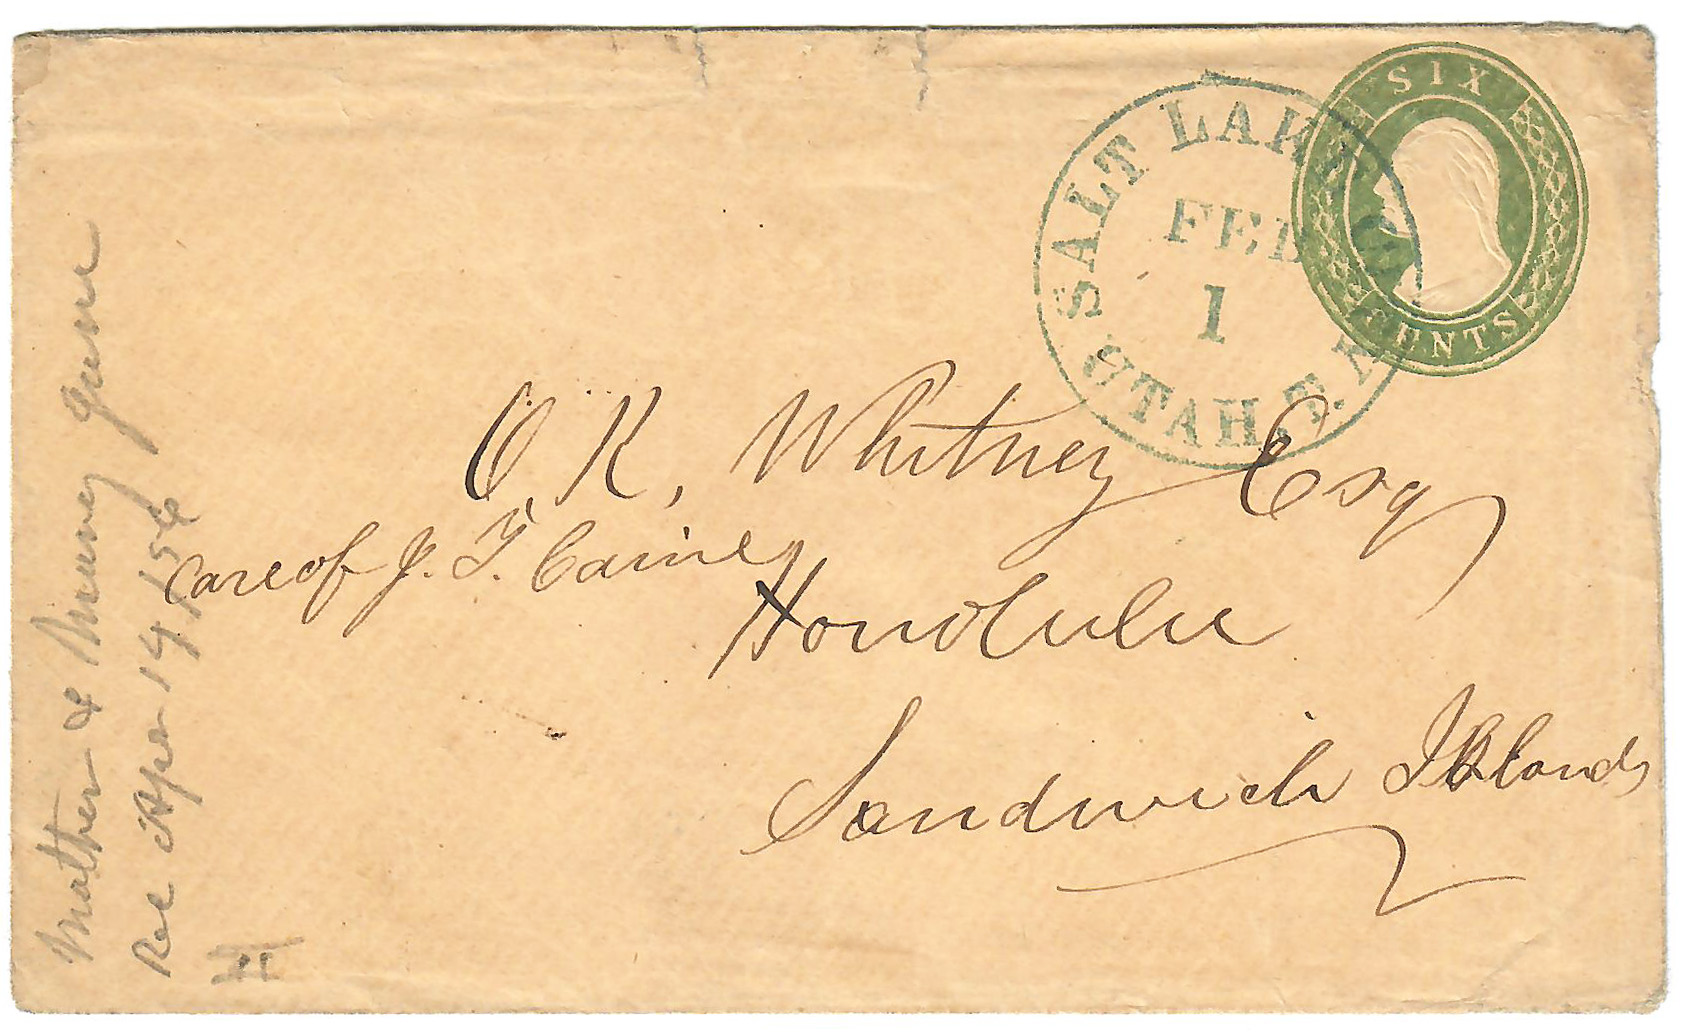 SIX
CENTS
SALT LAKE C
FEB
1
UTAH.T.
O. K. Whitney Esq
Care of J. T. Caine
Honolulu
Sandwich Islands
Mother & Murney
Rec Apr 14 / 56